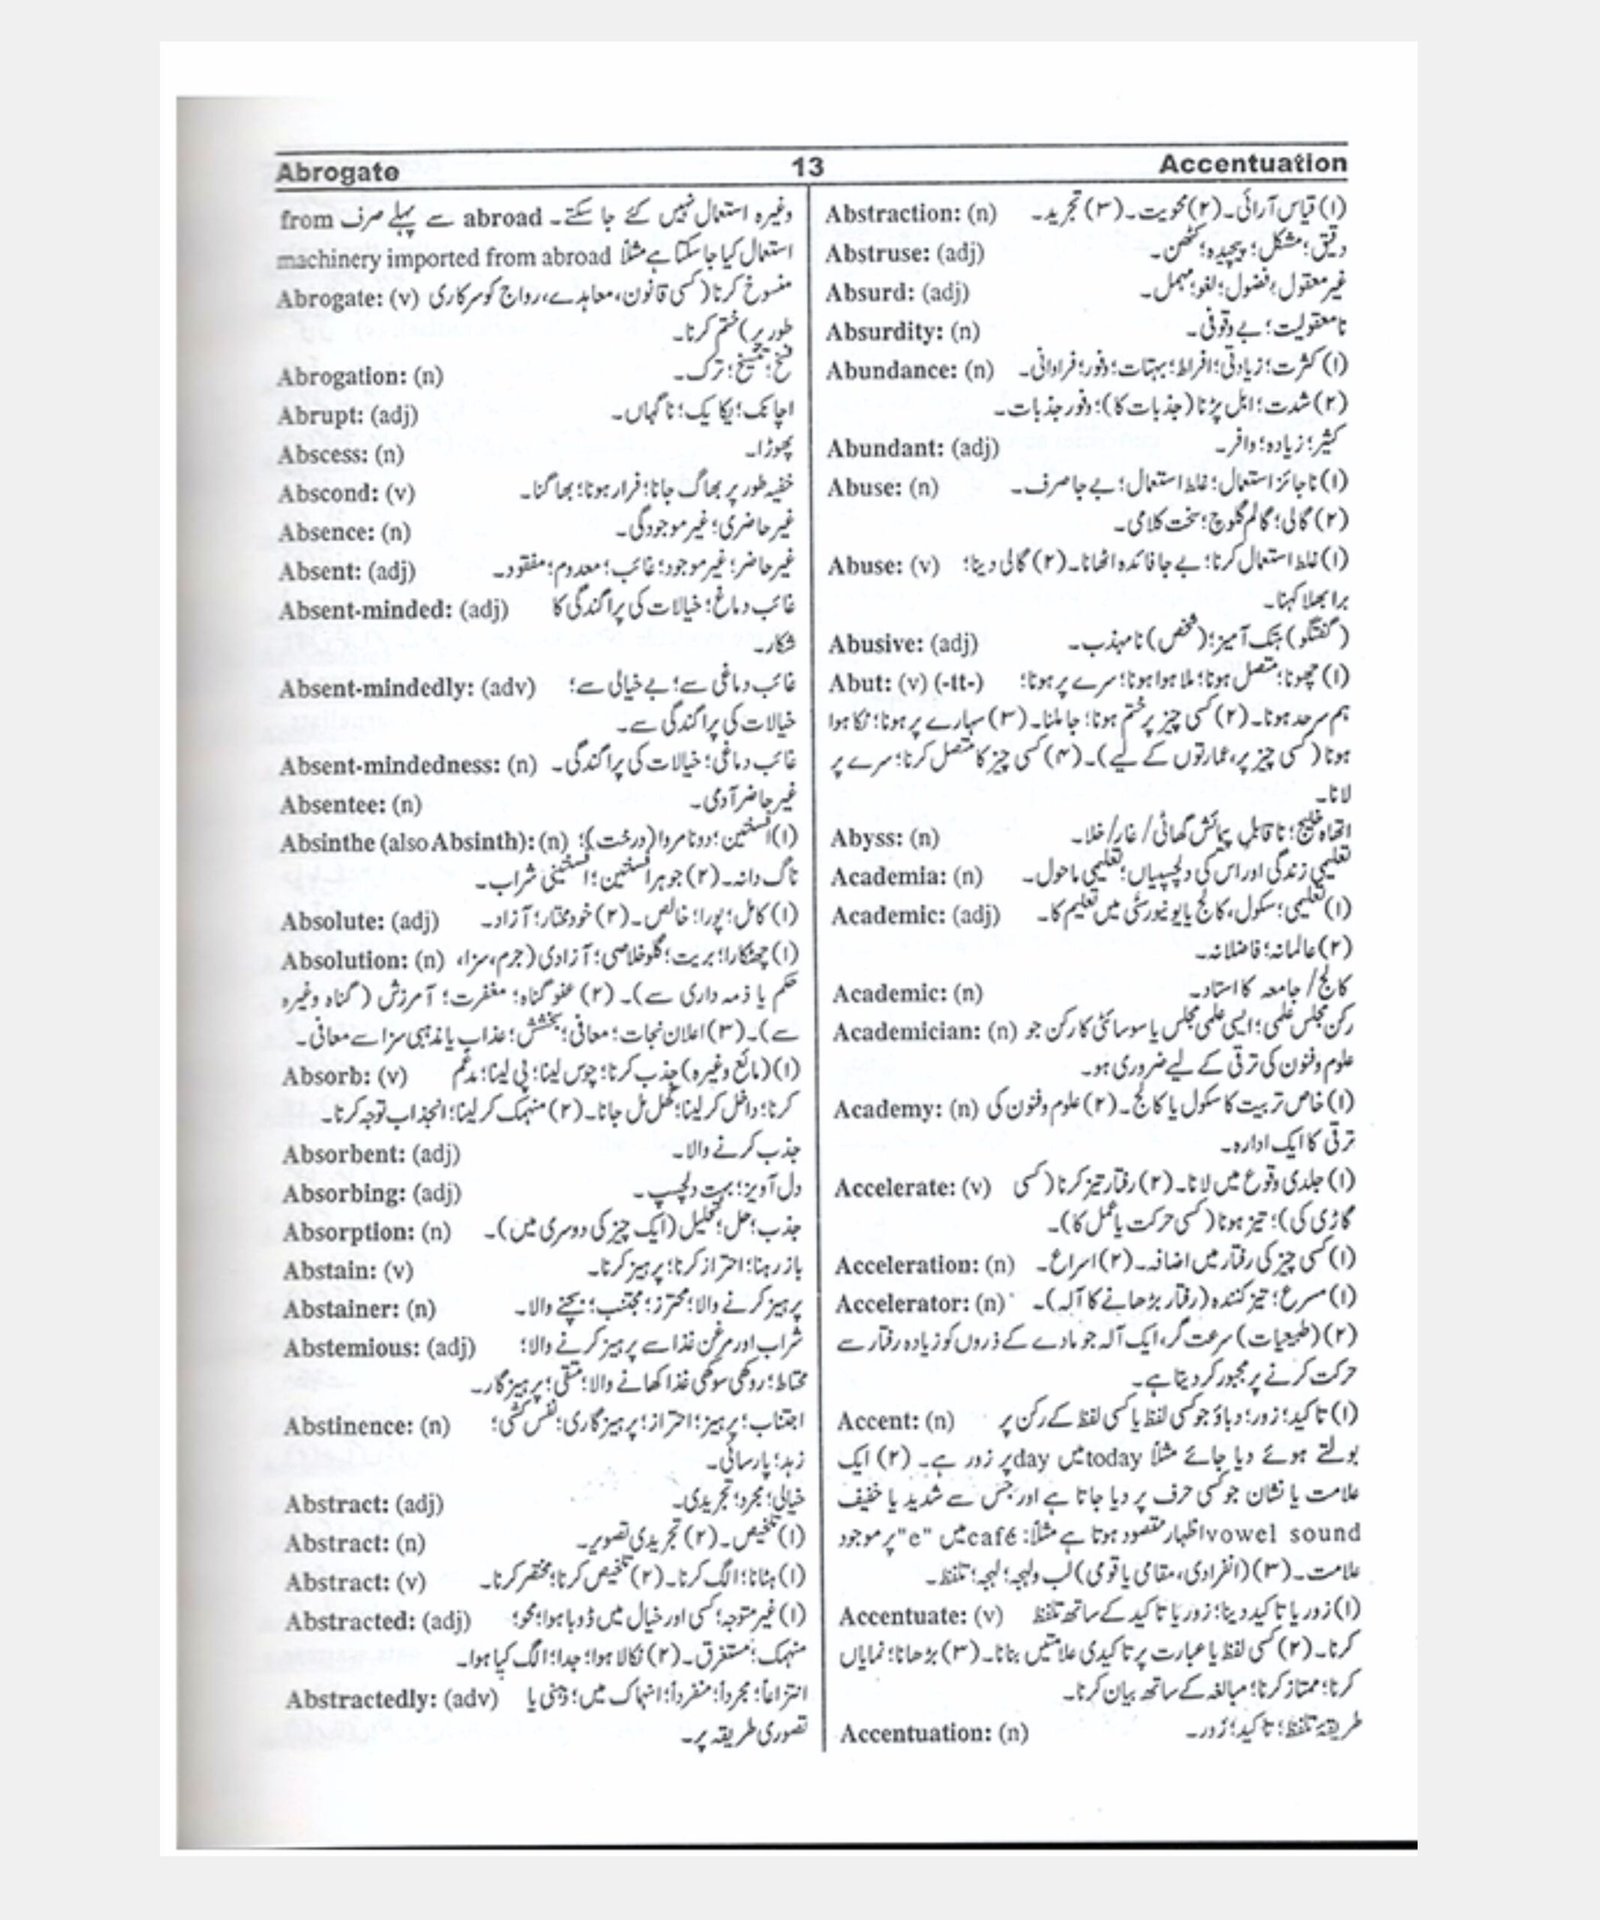 Abrogate 13 Accentuation
وغیرہ استعمال نہیں کئے جا سکتے۔ abroad سے پہلے صرف from
استعمال کیا جا سکتا ہے مثلاً machinery imported from abroad
Abrogate: (v) منسوخ کرنا (کسی قانون، معاہدے، رواج کو سرکاری
طور پر) ختم کرنا۔
Abrogation: (n) فسخ؛ تنسیخ؛ ترک۔
Abrupt: (adj) اچانک؛ یکا یک؛ ناگہاں۔
Abscess: (n) پھوڑا۔
Abscond: (v) خفیہ طور پر بھاگ جانا؛ فرار ہونا؛ بھاگنا۔
Absence: (n) غیر حاضری؛ غیر موجودگی۔
Absent: (adj) غیر حاضر؛ غیر موجود؛ غائب؛ معدوم؛ مفقود۔
Absent-minded: (adj) غائب دماغ؛ خیالات کی پراگندگی کا
شکار۔
Absent-mindedly: (adv) غائب دماغی سے؛ بے خیالی سے؛
خیالات کی پراگندگی سے۔
Absent-mindedness: (n) غائب دماغی؛ خیالات کی پراگندگی۔
Absentee: (n) غیر حاضر آدمی۔
Absinthe (also Absinth): (n) (۱) افسنتین؛ دونا مروا (درخت)؛
ناگ دانہ۔ (۲) جوہر افسنتین؛ افسنتینی شراب۔
Absolute: (adj) (۱) کامل؛ پورا؛ خالص۔ (۲) خودمختار؛ آزاد۔
Absolution: (n) (۱) چھٹکارا؛ بریت؛ گلوخلاصی؛ آزادی (جرم، سزا،
حکم یا ذمہ داری سے)۔ (۲) عفو گناہ؛ مغفرت؛ آمرزش (گناہ وغیرہ
سے)۔ (۳) اعلان نجات؛ معافی؛ بخشش؛ عذاب یا مذہبی سزا سے معافی۔
Absorb: (v) (۱) (مائع وغیرہ) جذب کرنا؛ چوس لینا؛ پی لینا؛ مدغم
کرنا؛ داخل کر لینا؛ گھل مل جانا۔ (۲) منہمک کر لینا؛ انجذاب توجہ کرنا۔
Absorbent: (adj) جذب کرنے والا۔
Absorbing: (adj) دل آویز؛ بہت دلچسپ۔
Absorption: (n) جذب؛ حل؛ تحلیل (ایک چیز کی دوسری میں)۔
Abstain: (v) باز رہنا؛ احتراز کرنا؛ پرہیز کرنا۔
Abstainer: (n) پرہیز کرنے والا؛ محترز؛ مجتنب؛ بچنے والا۔
Abstemious: (adj) شراب اور مرغن غذا سے پرہیز کرنے والا؛
محتاط؛ روکھی سوکھی غذا کھانے والا؛ متقی؛ پرہیز گار۔
Abstinence: (n) اجتناب؛ پرہیز؛ احتراز؛ پرہیز گاری؛ نفس کشی؛
زہد؛ پارسائی۔
Abstract: (adj) خیالی؛ مجرد؛ تجریدی۔
Abstract: (n) (۱) تلخیص۔ (۲) تجریدی تصویر۔
Abstract: (v) (۱) ہٹانا؛ الگ کرنا۔ (۲) تلخیص کرنا؛ مختصر کرنا۔
Abstracted: (adj) (۱) غیر متوجہ؛ کسی اور خیال میں ڈوبا ہوا؛ محو؛
منہمک؛ مستغرق۔ (۲) نکالا ہوا؛ جدا؛ الگ کیا ہوا۔
Abstractedly: (adv) انتزاعاً؛ مجرداً؛ منفرداً؛ انہماک میں؛ ذہنی یا
تصوری طریقہ پر۔
Abstraction: (n) (۱) قیاس آرائی۔ (۲) محویت۔ (۳) تجرید۔
Abstruse: (adj) دقیق؛ مشکل؛ پیچیدہ؛ کٹھن۔
Absurd: (adj) غیر معقول؛ فضول؛ لغو؛ مہمل۔
Absurdity: (n) نامعقولیت؛ بے وقوفی۔
Abundance: (n) (۱) کثرت؛ زیادتی؛ افراط؛ بہتات؛ وفور؛ فراوانی۔
(۲) شدت؛ ابل پڑنا (جذبات کا)؛ وفور جذبات۔
Abundant: (adj) کثیر؛ زیادہ؛ وافر۔
Abuse: (n) (۱) ناجائز استعمال؛ غلط استعمال؛ بے جا صرف۔
(۲) گالی؛ گالم گلوچ؛ سخت کلامی۔
Abuse: (v) (۱) غلط استعمال کرنا؛ بے جا فائدہ اٹھانا۔ (۲) گالی دینا؛
برا بھلا کہنا۔
Abusive: (adj) (گفتگو) ہتک آمیز؛ (شخص) نامہذب۔
Abut: (v) (-tt-) (۱) چھونا؛ متصل ہونا؛ ملا ہوا ہونا؛ سرے پر ہونا؛
ہم سرحد ہونا۔ (۲) کسی چیز پر ختم ہونا؛ جا ملنا۔ (۳) سہارے پر ہونا؛ ٹکا ہوا
ہونا (کسی چیز پر، عمارتوں کے لیے)۔ (۴) کسی چیز کا متصل کرنا؛ سرے پر
لانا۔
Abyss: (n) اتھاہ خلیج؛ ناقابل پیمائش گھاٹی/غار/خلا۔
Academia: (n) تعلیمی زندگی اور اس کی دلچسپیاں؛ تعلیمی ماحول۔
Academic: (adj) (۱) تعلیمی؛ سکول، کالج یا یونیورسٹی میں تعلیم کا۔
(۲) عالمانہ؛ فاضلانہ۔
Academic: (n) کالج/ جامعہ کا استاد۔
Academician: (n) رکن مجلس علمی؛ ایسی علمی مجلس یا سوسائٹی کا رکن جو
علوم و فنون کی ترقی کے لیے ضروری ہو۔
Academy: (n) (۱) خاص تربیت کا سکول یا کالج۔ (۲) علوم و فنون کی
ترقی کا ایک ادارہ۔
Accelerate: (v) (۱) جلدی وقوع میں لانا۔ (۲) رفتار تیز کرنا (کسی
گاڑی کی)؛ تیز ہونا (کسی حرکت یا عمل کا)۔
Acceleration: (n) (۱) کسی چیز کی رفتار میں اضافہ۔ (۲) اسراع۔
Accelerator: (n) (۱) مسرع؛ تیز کنندہ (رفتار بڑھانے کا آلہ)۔
(۲) (طبیعیات) سرعت گر، ایک آلہ جو مادے کے ذروں کو زیادہ رفتار سے
حرکت کرنے پر مجبور کر دیتا ہے۔
Accent: (n) (۱) تاکید؛ زور؛ دباؤ جو کسی لفظ یا کسی لفظ کے رکن پر
بولتے ہوئے دیا جائے مثلاً today میں day پر زور ہے۔ (۲) ایک
علامت یا نشان جو کسی حرف پر دیا جاتا ہے اور جس سے شدید یا خفیف
vowel sound اظہار مقصود ہوتا ہے مثلاً: café میں "e" پر موجود
علامت۔ (۳) (انفرادی، مقامی یا قومی) لب ولہجہ؛ لہجہ؛ تلفظ۔
Accentuate: (v) (۱) زور یا تاکید دینا؛ زور یا تاکید کے ساتھ تلفظ
کرنا۔ (۲) کسی لفظ یا عبارت پر تاکیدی علامتیں بنانا۔ (۳) بڑھانا؛ نمایاں
کرنا؛ ممتاز کرنا؛ مبالغہ کے ساتھ بیان کرنا۔
Accentuation: (n) طریقۂ تلفظ؛ تاکید؛ زور۔